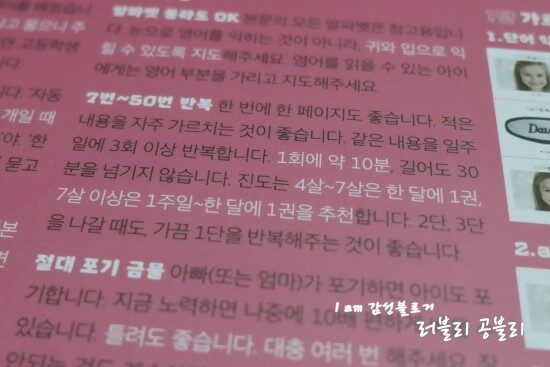 알파벳 몰라도 OK 본문의 모든 알파벳은 참고용입니
다. 눈으로 영어를 익히는 것이 아니라, 귀와 입으로 익
힐 수 있도록 지도해주세요. 영어를 읽을 수 있는 아이
에게는 영어 부분을 가리고 지도해주세요.
7번~50번 반복 한 번에 한 페이지도 좋습니다. 적은
내용을 자주 가르치는 것이 좋습니다. 같은 내용을 일주
일에 3회 이상 반복합니다. 1회에 약 10분, 길어도 30
분을 넘기지 않습니다. 진도는 4살~7살은 한 달에 1권,
7살 이상은 1주일~한 달에 1권을 추천합니다. 2단, 3단
을 나갈 때도, 가끔 1단을 반복해주는 것이 좋습니다.
절대 포기 금물 아빠(또는 엄마)가 포기하면 아이도 포
기합니다. 지금 노력하면 나중에 10배 편하
있습니다. 틀려도 좋습니다. 대충 여러 번 해주세요. 잘
고등학생
자동
개일 때
묻고
1.단어 익
2.
I am 감성블로거
러블리 공블리